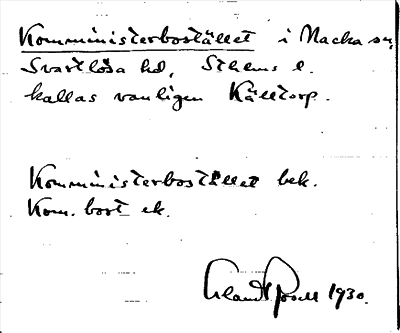 Komministerbostället i Nacka sn,
Svartlösa hd, Sthlms l.
kallas vanligen Källtorp.
Komministerbostället bek.
Kom. bost ek.
1930.